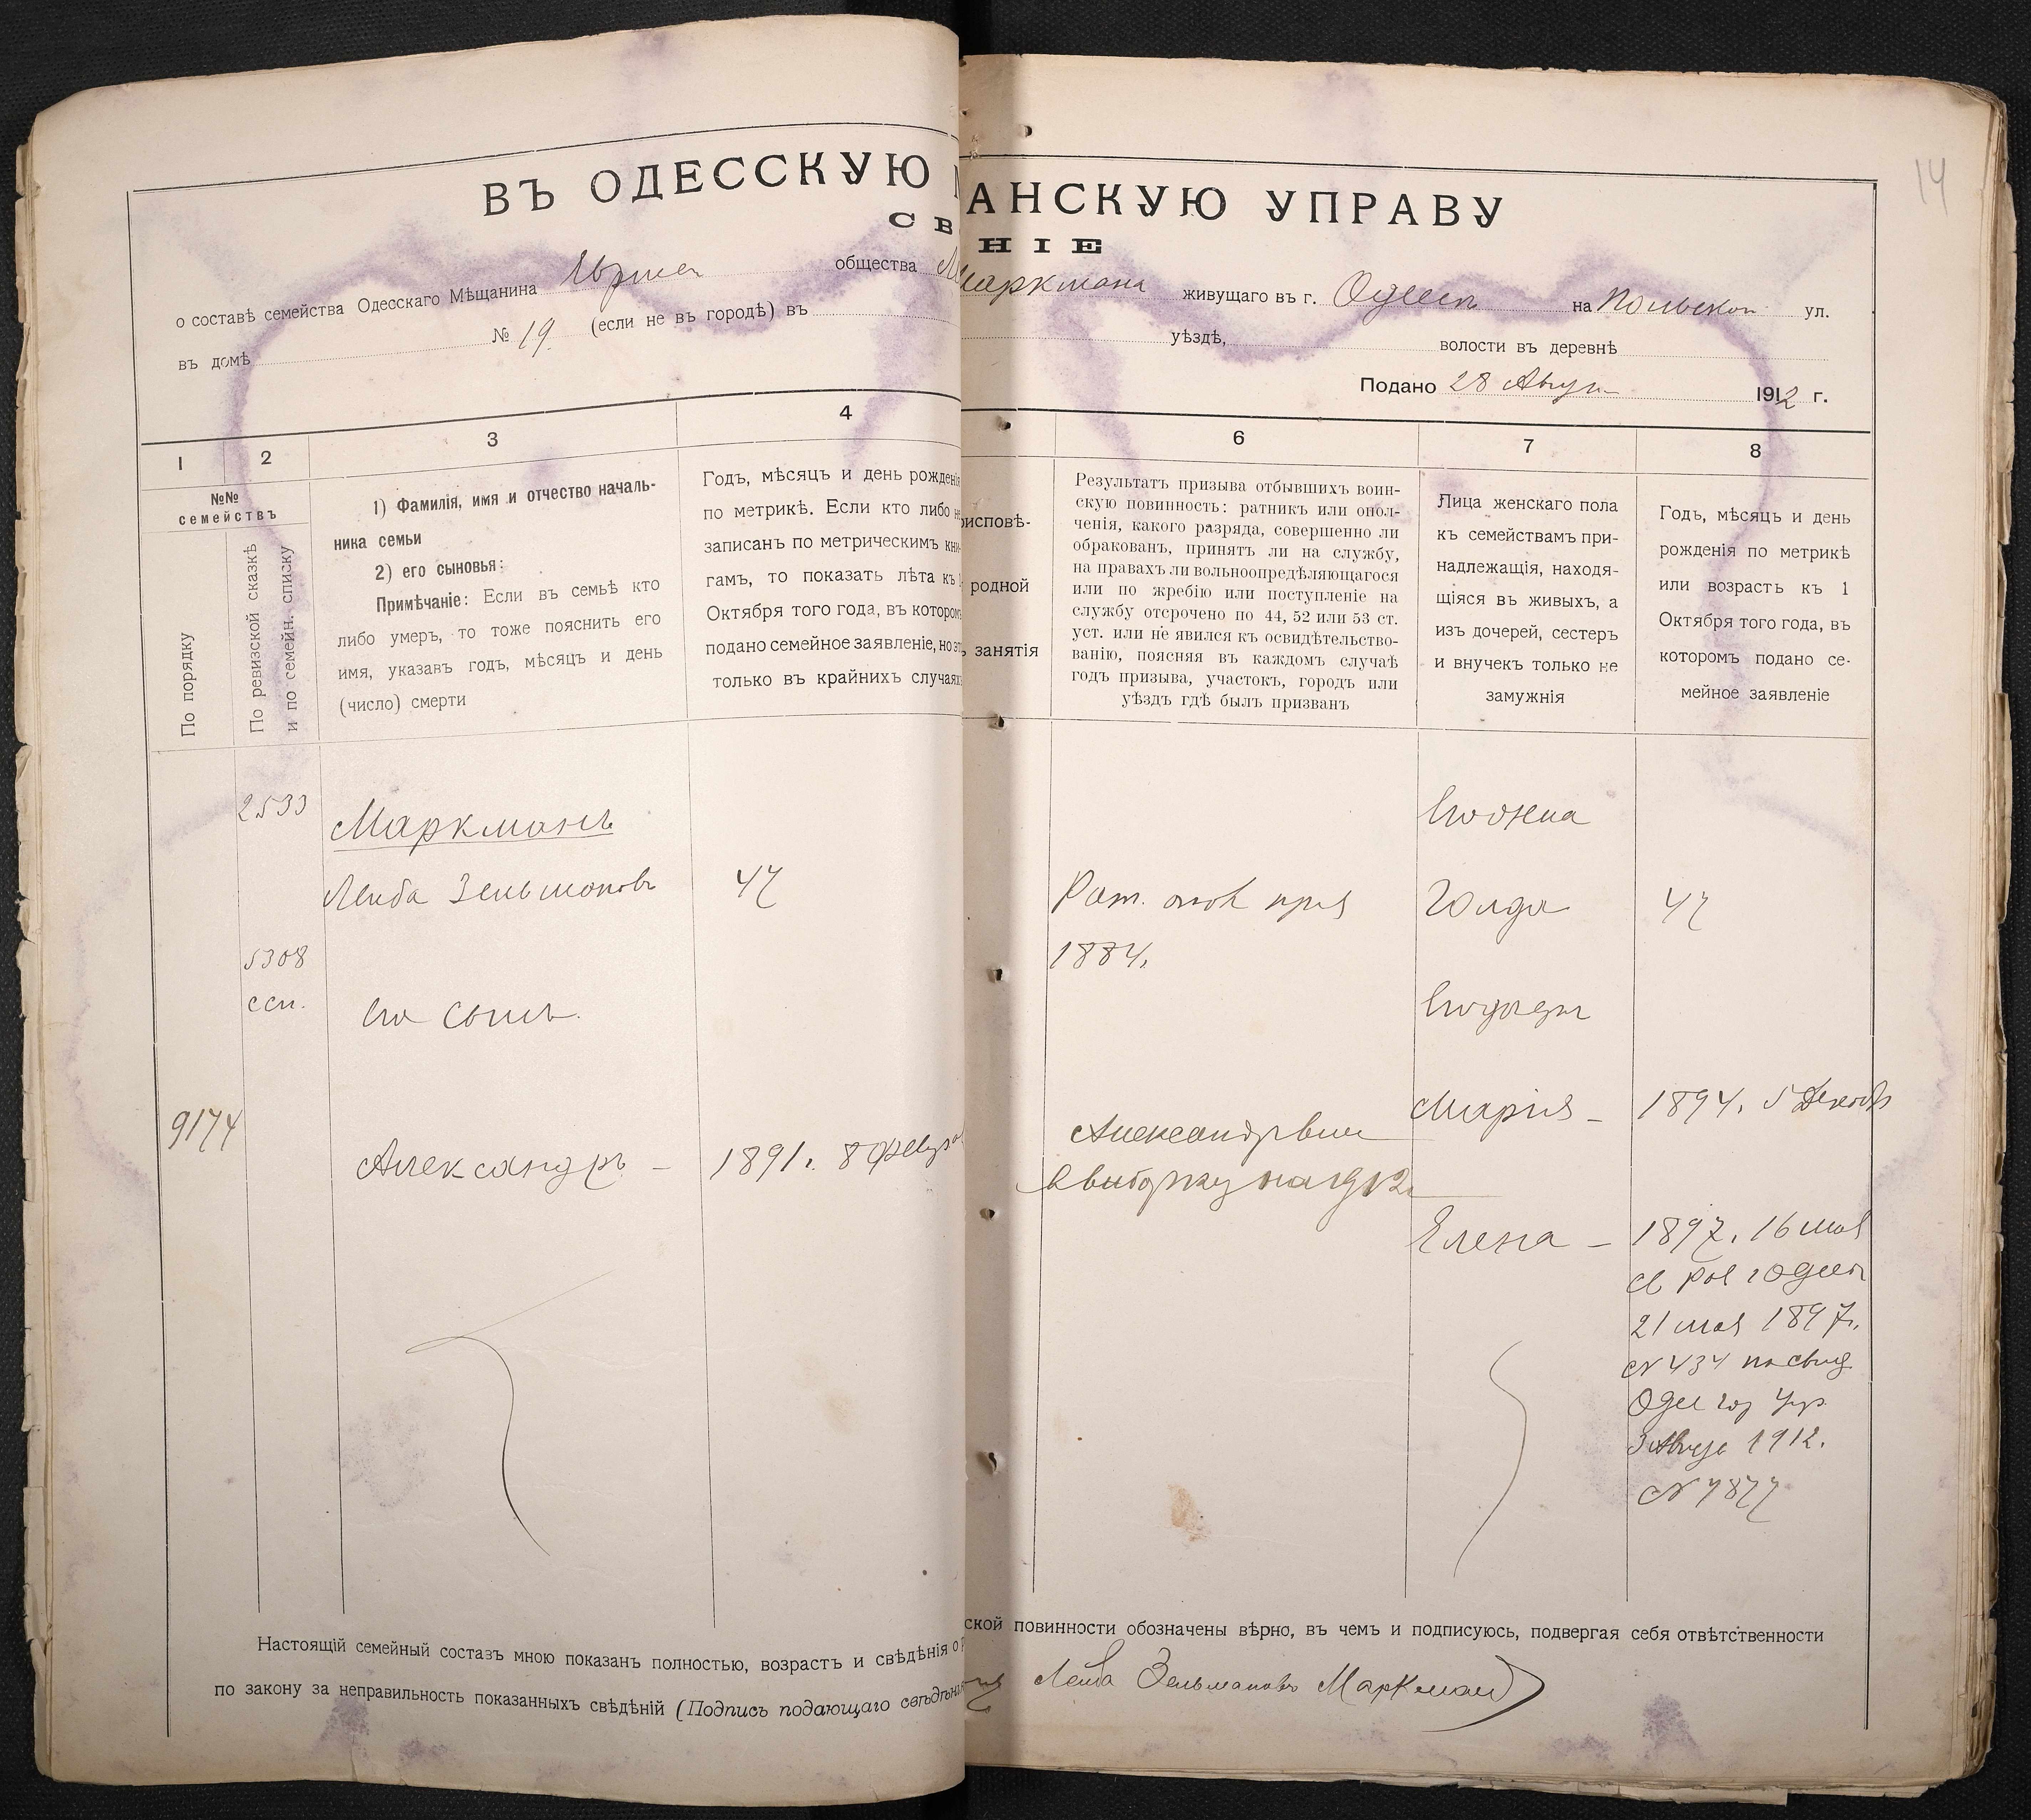 14
ВЪ ОДЕССКУЮ АНСКУЮ УПРАВУ
СВ НІЕ
о составѣ семейства Одесскаго Мѣщанина общества Маркмана живущаго въ г. Одессѣ на Польской ул.
въ домѣ № 19 (если не въ городѣ) въ уѣздѣ, волости въ деревнѣ
Подано 28 Август 1912 г.
1 2 3 4 6 7 8
№№
семействъ
По порядку
По ревизской сказкѣ
и по семейн. списку
1) Фамилія, имя и отчество началь-
ника семьи
2) его сыновья:
Примѣчаніе: Если въ семьѣ кто
либо умеръ, то тоже пояснить его
имя, указавъ годъ, мѣсяцъ и день
(число) смерти
Годъ, мѣсяцъ и день рожденія
по метрикѣ. Если кто либо не
записанъ по метрическимъ кни-
гамъ, то показать лѣта къ 1
Октября того года, въ которомъ
подано семейное заявленіе, но эт
только въ крайнихъ случаяхъ
рисповѣ-
родной
ъ занятія
Результатъ призыва отбывшихъ воин-
скую повинность: ратникъ или опол-
ченія, какого разряда, совершенно ли
обракованъ, принятъ ли на службу,
на правахъ ли вольноопредѣляющагося
или по жребію или поступленіе на
службу отсрочено по 44, 52 или 53 ст.
уст. или не явился къ освидѣтельство-
ванію, поясняя въ каждомъ случаѣ
годъ призыва, участокъ, городъ или
уѣздъ гдѣ былъ призванъ
Лица женскаго пола
къ семействамъ при-
надлежащія, находя-
щіяся въ живыхъ, а
изъ дочерей, сестеръ
и внучекъ только не
замужнія
Годъ, мѣсяцъ и день
рожденія по метрикѣ
или возрастъ къ 1
Октября того года, въ
которомъ подано се-
мейное заявленіе
2533
Маркманъ
Его жена
Лейба Зельмановъ 47
Рат. опол приз
Голда 47
5308
1884.
ссп.
Его сынъ.
Его дочери
Марія — 1894. 5 Декабр
9174
Александръ — 1891. 8 Феврал
Александръ вне
в выборку на 1912
Елена — 1897. 16 мая
21 мая 1897.
№ 434 по свид
Одес гор упр
3 Авгус 1912.
№ 7877
Настоящій семейный составъ мною показанъ полностью, возрастъ и свѣдѣнія о ской повинности обозначены вѣрно, въ чемъ и подписуюсь, подвергая себя отвѣтственности
по закону за неправильность показанныхъ свѣдѣній (Подпись подающаго свѣдѣнія Лейба Зельмановъ Маркман)